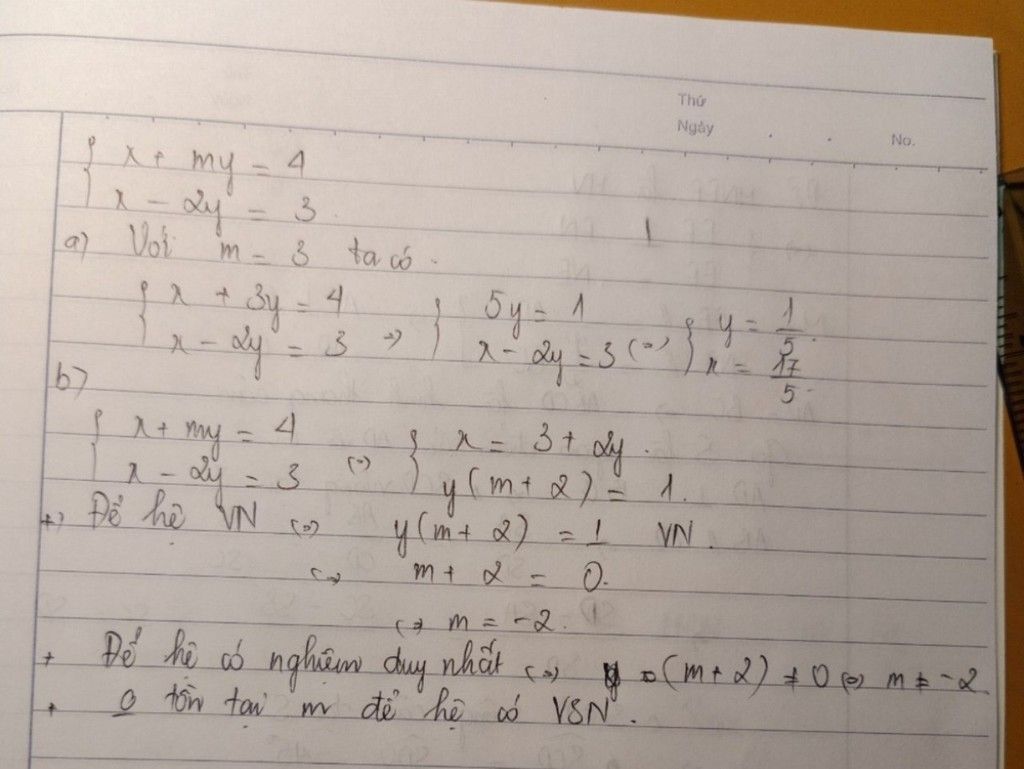 Thứ
Ngày
No.
{ x + my = 4
x - 2y = 3.
a) Với m = 3 ta có.
{ x + 3y = 4 { 5y = 1 { y = 1/5.
x - 2y = 3 => x - 2y = 3 (=) x = 17/5.
b)
{ x + my = 4 { x = 3 + 2y.
x - 2y = 3 (=) y(m + 2) = 1.
+) Để hệ VN (=) y(m + 2) = 1 VN.
(=) m + 2 = 0.
(=) m = -2.
+ Để hệ có nghiệm duy nhất (=) (m + 2) ≠ 0 (=) m ≠ -2.
+ o tồn tại m để hệ có VSN.